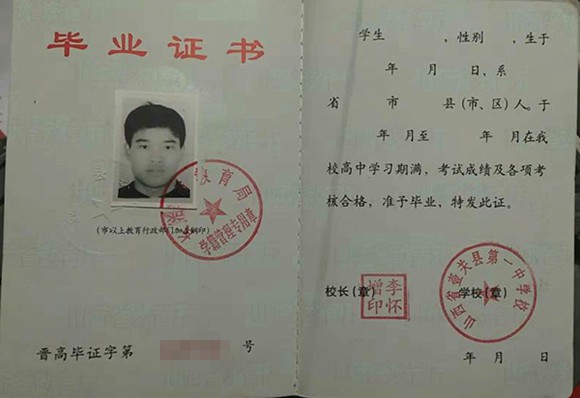 毕业证书
教育局
学籍管理专用章
(市以上教育行政部门加盖钢印)
晋高毕证字第 号
学生 ,性别 ,生于
年 月 日、系
省 市 县(市、区)人。于
年 月至 年 月在我
校高中学习期满,考试成绩及各项考
核合格,准予毕业,特发此证。
校长(章) 学校(章)
李怀增印
山西省壶关县第一中学校
年 月 日